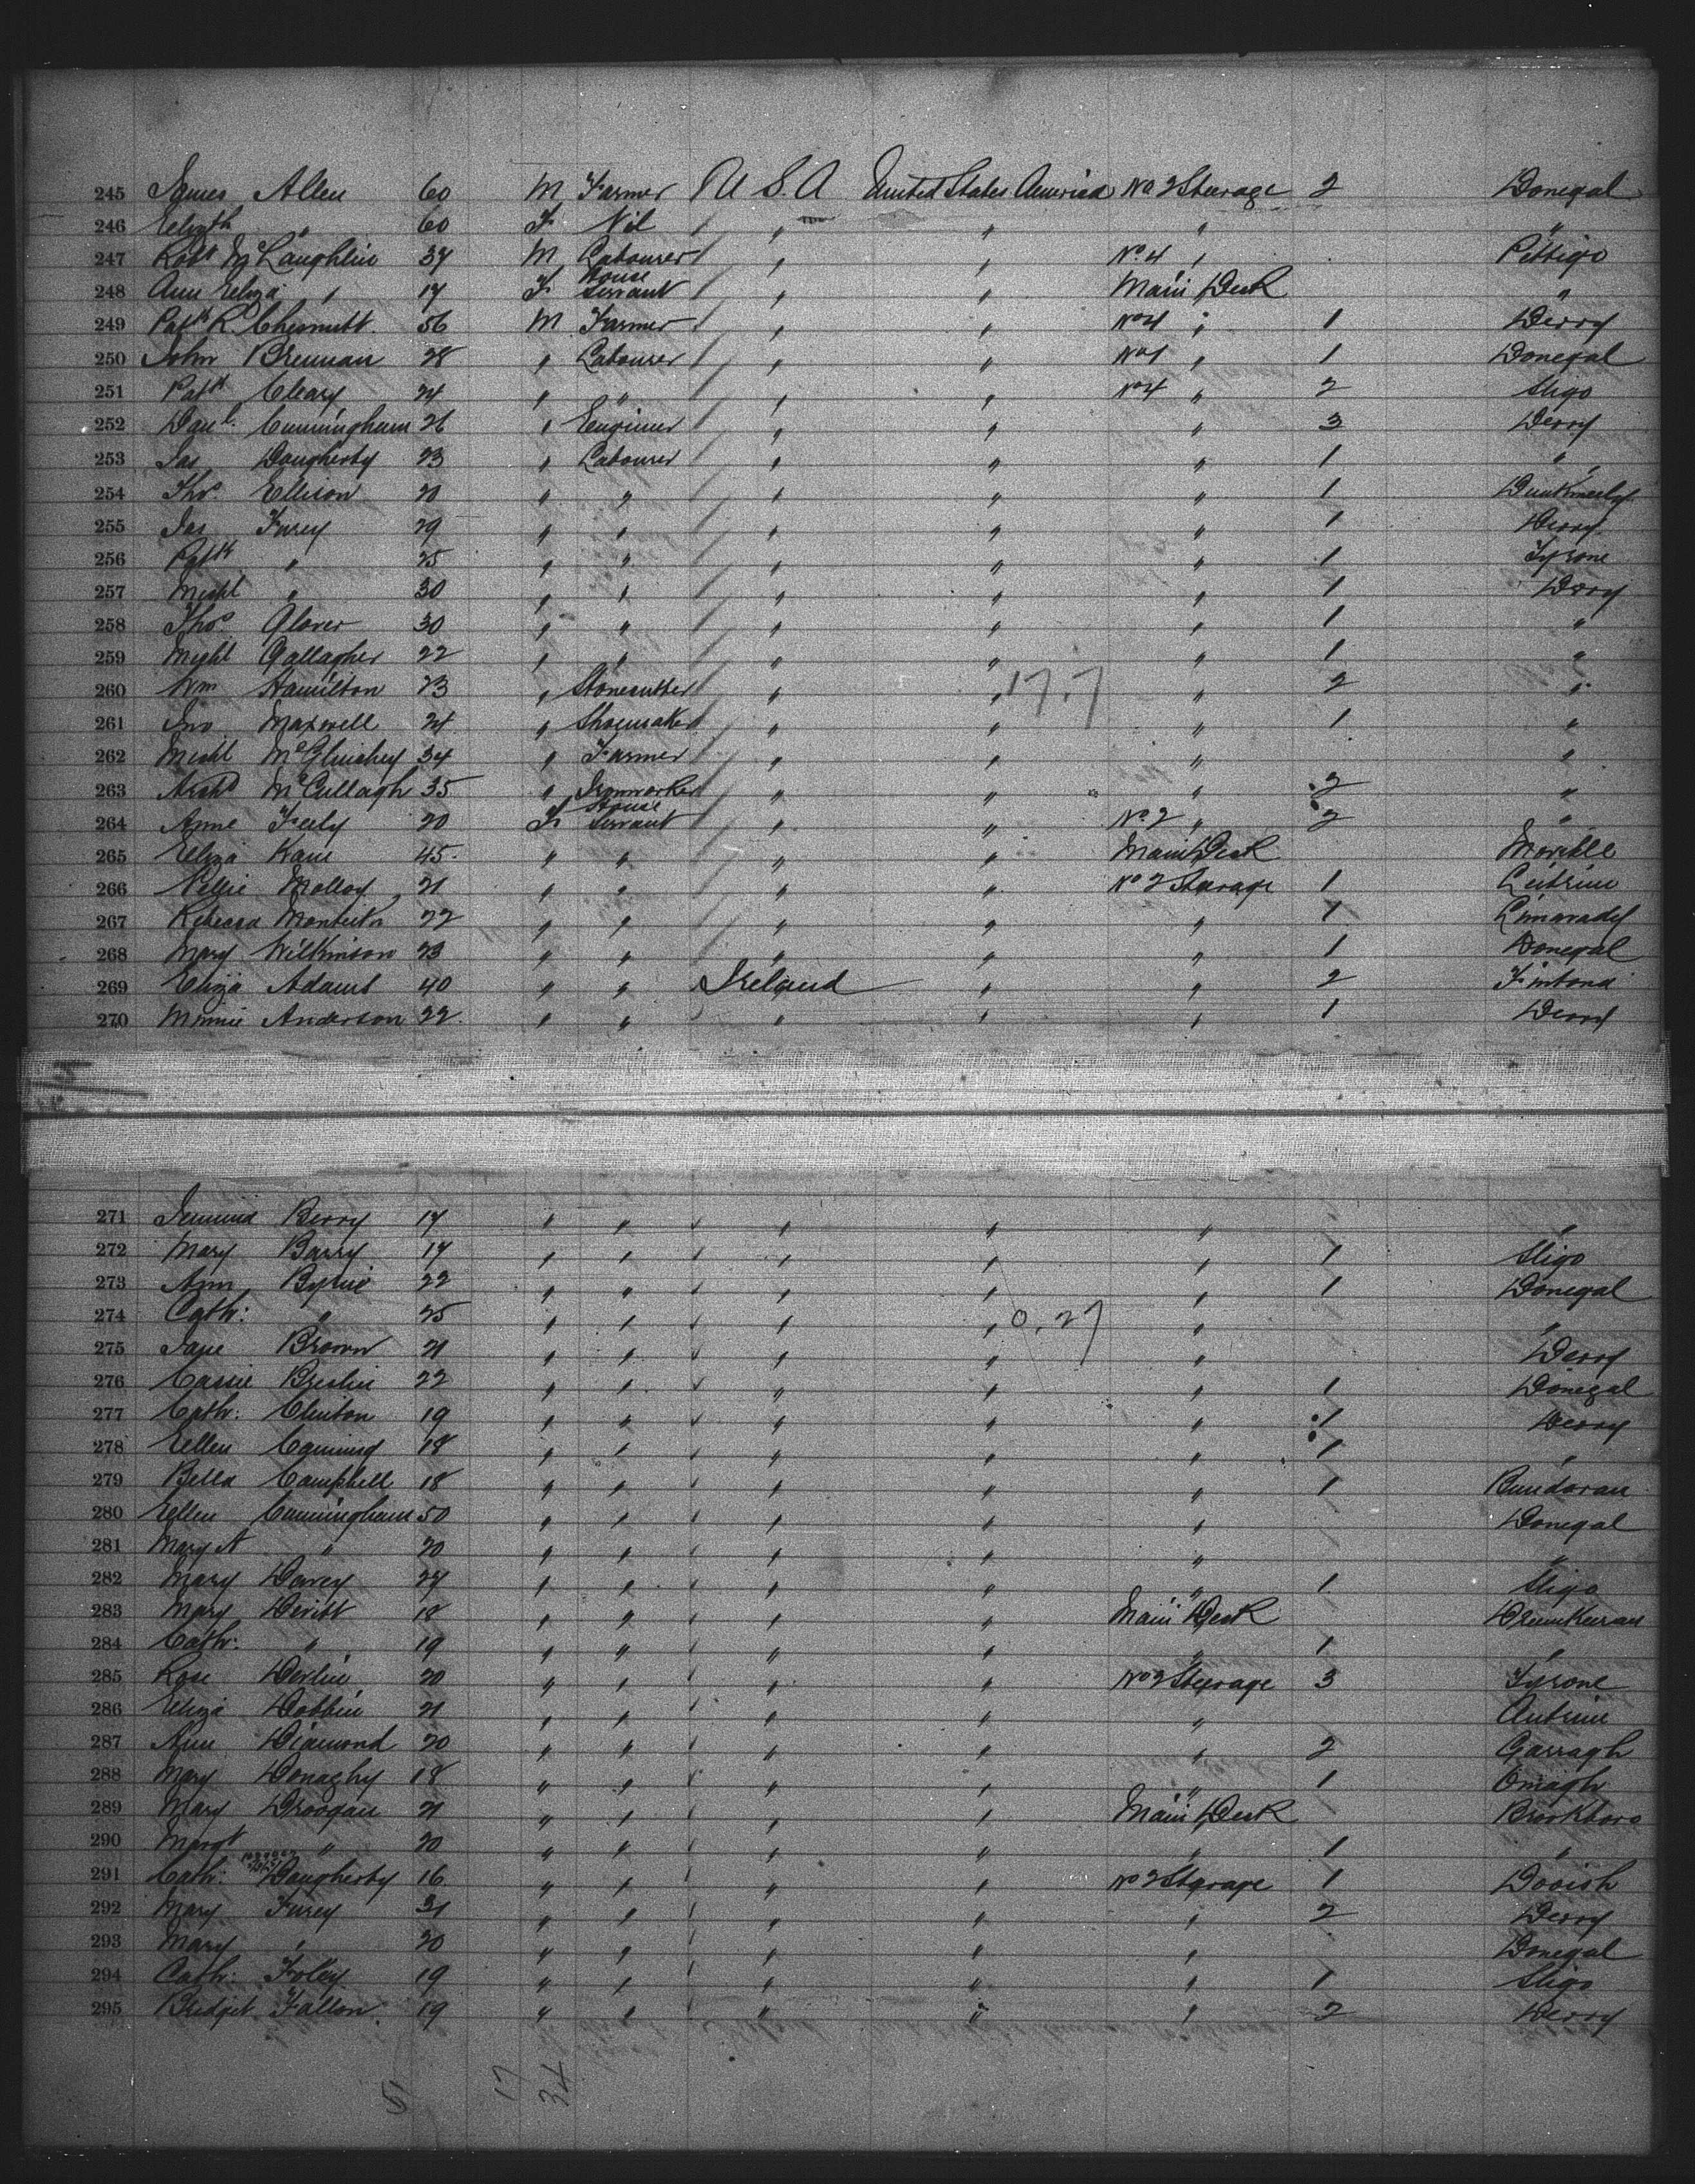 245 James Allen 60 M Farmer U S. A United States America No 2 Steerage 2 Donegal
246 Elizth " 60 F Nil " " " "
247 Robt McLaughlin 37 M Labourer " " No 4 " Pettigo
248 Ann Eliza " 17 F House Servant " " Main Deck "
249 Patk R. Chesnutt 56 M Farmer " " No 4 " 1 Derry
250 John Brennan 28 " Labourer " " No 1 " 1 Donegal
251 Patk Cleary 24 " " " " No 4 " 2 Sligo
252 Danl. Cunningham 26 " Engineer " " " 3 Derry
253 Jas Daugherty 23 " Labourer " " " 1 "
254 Thos. Ellison 20 " " " " " 1 Dunkineely
255 Jas Furey 29 " " " " " 1 Derry
256 Patk " 25 " " " " " 1 Tyrone
257 Michl " 30 " " " " " 1 Derry
258 Thos. Glover 30 " " " " " 1 "
259 Michl Gallagher 22 " " " " " 1 "
260 Wm Hamilton 23 " Stonecutter " " 17.7 " 2 "
261 Jno Maxwell 24 " Shoemaker " " " 1 "
262 Michl McGlinchey 34 " Farmer " " " "
263 Archd McCullagh 35 " Ironworker " " " 2 "
264 Anne Feely 20 F House Servant " " No. 2 " 2 "
265 Eliza Kane 45 " " " " Main Deck Moville
266 Nellie Molloy 21 " " " " No 2 Steerage 1 Leitrim
267 Rebecca Monteith 22 " " " " " 1 Limavady
268 Mary Wilkinson 23 " " " " " 1 Donegal
269 Eliza Adams 40 " " Ireland " " 2 Fintona
270 Minnie Anderson 22 " " " " " 1 Derry
271 Jemima Berry 17 " " " " " "
272 Mary Barry 17 " " " " " 1 Sligo
273 Ann Byrne 22 " " " " " 1 Donegal
274 Cath: " 25 " " " " 0.27 " "
275 Jane Brown 21 " " " " " Derry
276 Cassie Breslin 22 " " " " " 1 Donegal
277 Cath: Clinton 19 " " " " " 1 Derry
278 Ellen Canning 18 " " " " " 1 "
279 Bella Campbell 18 " " " " " 1 Bundoran
280 Ellen Cunningham 50 " " " " " Donegal
281 Mary A " 20 " " " " " "
282 Mary Davey 27 " " " " " 1 Sligo
283 Mary Devitt 18 " " " " Main Deck Drumkeeran
284 Cath: " 19 " " " " " 1 "
285 Rose Devlin 20 " " " " No 2 Steerage 3 Tyrone
286 Eliza Dobbin 21 " " " " " Antrim
287 Ann Diamond 20 " " " " " 2 Garragh
288 Mary Donaghy 18 " " " " " 1 Omagh
289 Mary Droogan 21 " " " " Main Deck Brookboro
290 Margt " 20 " " " " " 1 "
291 Cath: Daugherty 16 " " " " No 2 Steerage 1 Dooish
292 Mary Furey 31 " " " " " 2 Derry
293 Mary " 20 " " " " " Donegal
294 Cath: Foley 19 " " " " " 1 Sligo
295 Bridget Fallon 19 " " " " " 2 Derry
51 17 34